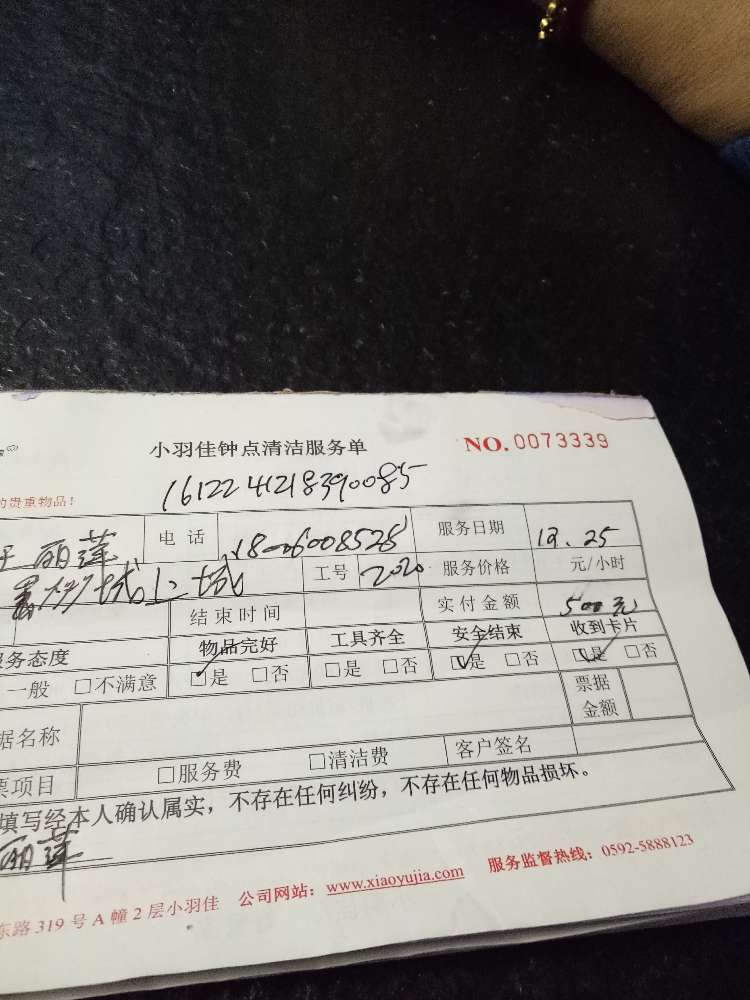 小羽佳钟点清洁服务单 NO. 0073339
的贵重物品!
1612241218390085
丽莲 电话 服务日期 12.25
城上城 工号 2020 服务价格 元/小时
结束时间 实付金额 500元
服务态度 物品完好 工具齐全 安全结束 收到卡片
一般 □不满意 □是 □否 □是 □否 □是 □否 □是 □否
据名称 票据金额
票项目 □服务费 □清洁费 客户签名
填写经本人确认属实,不存在任何纠纷,不存在任何物品损坏。
丽莲
东路 319 号 A 幢 2 层小羽佳 公司网站: www.xiaoyujia.com 服务监督热线: 0592-5888123